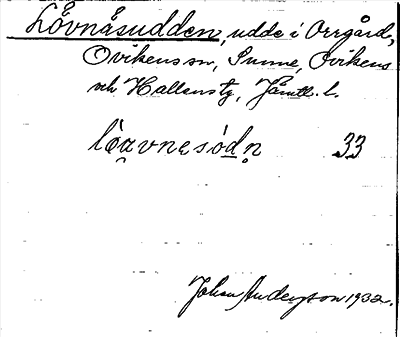 Lövnåsudden, udde i Orrgård,
Ovikens sn, Sunne, Ovikens
och Hallens tg, Jämtl. l.
löavnesódn 33
Johan Anderson 1932.